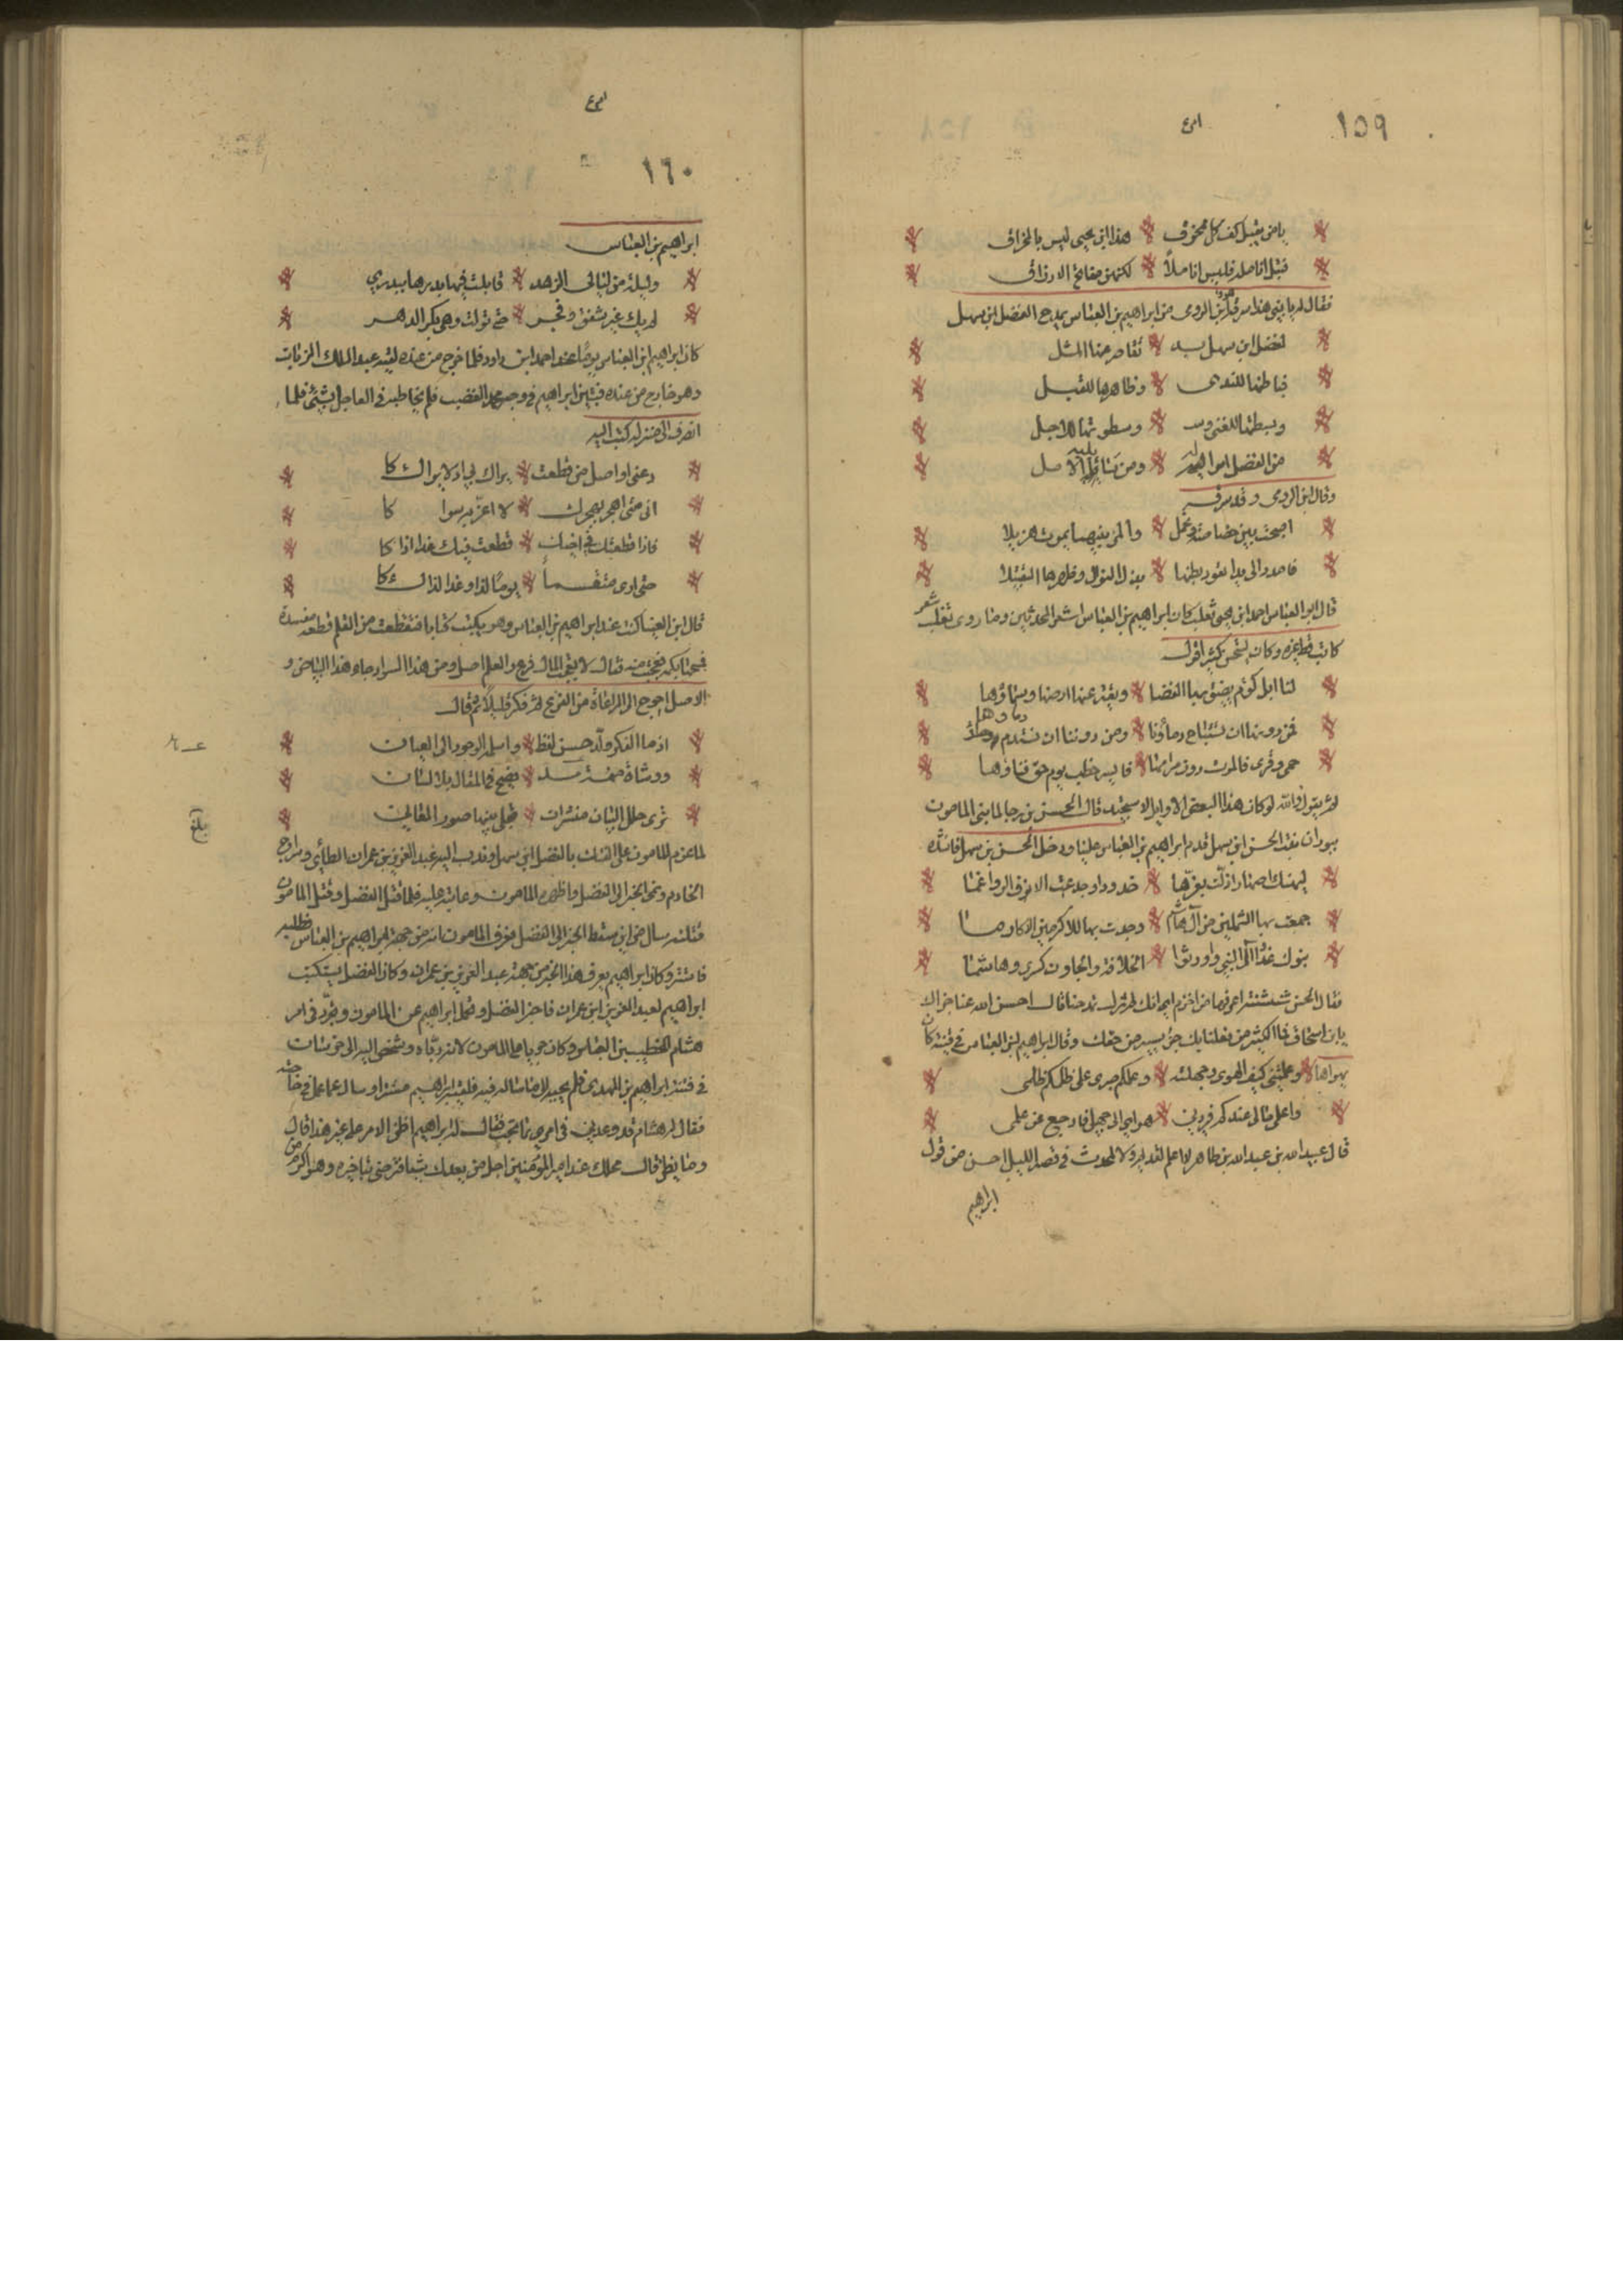 ١٥٩
يا من يقبل كف كل مخرق هذا ابن يحيى ليس بالمخراق
قبل انامله فليس اناملاً لكنهن مفاتح الارزاق
فقال له يا بني هذا سرقه ابن الرومى من ابراهيم بن العباس يمدح الفضل ابن سهل
لفضل ابن سهل يد تقاصر عنها المثل
فباطنها للندى وظاهرها للقبل
وبسطتها للغنى وسطوتها للاجل
وقال ابن الرومى وقد سرقه
اصبحت بين خصاصة وتجمل والمرء بينهما يموت هزيلا
فامدد الى يدا تعود بطنها بذل النوال وظهرها التقبيلا
قال ابو العباس احمد ابن يحيى ثعلب كان ابراهيم بن العباس اشعر المحدثين وما روى ثعلب شعر
كاتب قط غيره وكان يستحسن كثيرا قوله
لنا ابل كوم يضيق بها الفضا ويفتر عنها ارضها وسماؤها
فمن دونها ان تستباح دماؤنا ومن دوننا ان تستذم دماؤها
حمى وقرى فالموت دون مرامها فايسر خطب يوم حق فناؤها
ثم يقول والله لو كان هذا لبعض الاوايل لاستجيد قال الحسن بن رجا لما بنى المامون
ببوران بنت الحسن ابن سهل قدم ابراهيم بن العباس علينا ودخل الحسن بن سهل فانشده
ليهنك اصهار اذلت بعزها خدودا وجدعت الانوف الرواغما
جمعت بها الشملين من آل هاشم وحزت بها للاكرمين الاكارما
بنوك غدوا آل النبي واورثوا الخلافة والحاوون كسرى وهاشما
فقال الحسن شنشنة اعرفها من اخزم انك لم تزل تمدحنا قال احسن الله عنا جزاك
يا ابن اسحاق فما الكثير من فعلنا بك جزء يسير من حقك وقال ابراهيم بن العباس في قينة كان
يهواها وعلمتني كيف الهوى وجهلته وعلمكم صبرى على ظلمكم ظلمى
واعلم مالى عندكم فيردنى هواي الى جهل فارجع عن علمى
قال عبيد الله بن عبد الله بن طاهر لا اعلم لقديم ولا لمحدث في قصر الليل احسن من قول
ابراهيم
١٦٠
ابراهيم بن العباس
وليلة من ليالي الزهد قابلت فيها بدرها ببدري
لم يك غير شفق وفجر حتى تولت وهي بكر الدهر
كان ابراهيم ابن العباس يومًا عند احمد ابن داود فلما خرج من عنده لقيه عبد الملك الزيات
وهو خارج من عنده فتبين ابراهيم في وجه محمد الغضب فلم يخاطبه في العاجل بشئ فلما
انصرف الى منزله كتب اليه
دعنى اواصل من قطعت يراك بي اذ لا يراكا
انى متى اهجر بهجرك لا اضر به سواكا
فاذا قطعتك في اخيك قطعت فيك غدا اذاكا
حتى ارى متقسماً يومًا لذا وغدا لذاكا
قال ابن العبا كنت عند ابراهيم بن العباس وهو يكتب كتابا فنقطت من القلم نقطة مفسدة
فمحاها بكمه فعجبت منه فقال لا تعجب المال فرع والعلم اصل ومن هذا السواد جاء هذا البياض و
الاصل احوج الى المراعاة من الفرع ثم فكر قليلاً ثم قال
اذ ما الفكر ولد حسن لفظ واسلمه الوجود الى العيان
ووشاه فنمنمه مسد فصيح في المقال بلا لسان
ترى حلل البيان منشرات تجلى بينها صور المعاني
بلغ
لما عزم المامون على الفتك بالفضل ابن سهل وندب اليه عبد العزيز بن عمران الطائي وسراج
الخادم ونحى الخبر الى الفضل واظهره للمامون وعاتبه عليه فلما قتل الفضل وقتل المامون
قتلته سال من اين سقط الخبر الى الفضل فعرف المامون انه من جهة ابراهيم بن العباس فطلبه
فاستتر وكان ابراهيم يعرف هذا الخبر من جهة عبد العزيز بن عمران وكان الفضل يستكتب
ابراهيم لعبد العزيز ابن عمران فاخبر الفضل وتحمل ابراهيم عن المامون وتجرد في امر
هشام الخطيب بن العباس وكان جريا على المامون لانه رباه وشخص اليه الى خراسان
في فتنة ابراهيم بن المهدي فلم يجبه لما ساله فيه فلقيه ابراهيم مستترا وساله عما عمل في حاجته
فقال له هشام قد وعدني في امرك بما تحب فقال له ابراهيم اظن الامر على غير هذا قال
وما يظن قال محلك عند امير المؤمنين اجل من يعدك بشئ فترضى بتاخيره وهو اكرم من